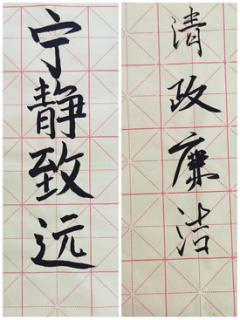 宁静致远
清政廉洁